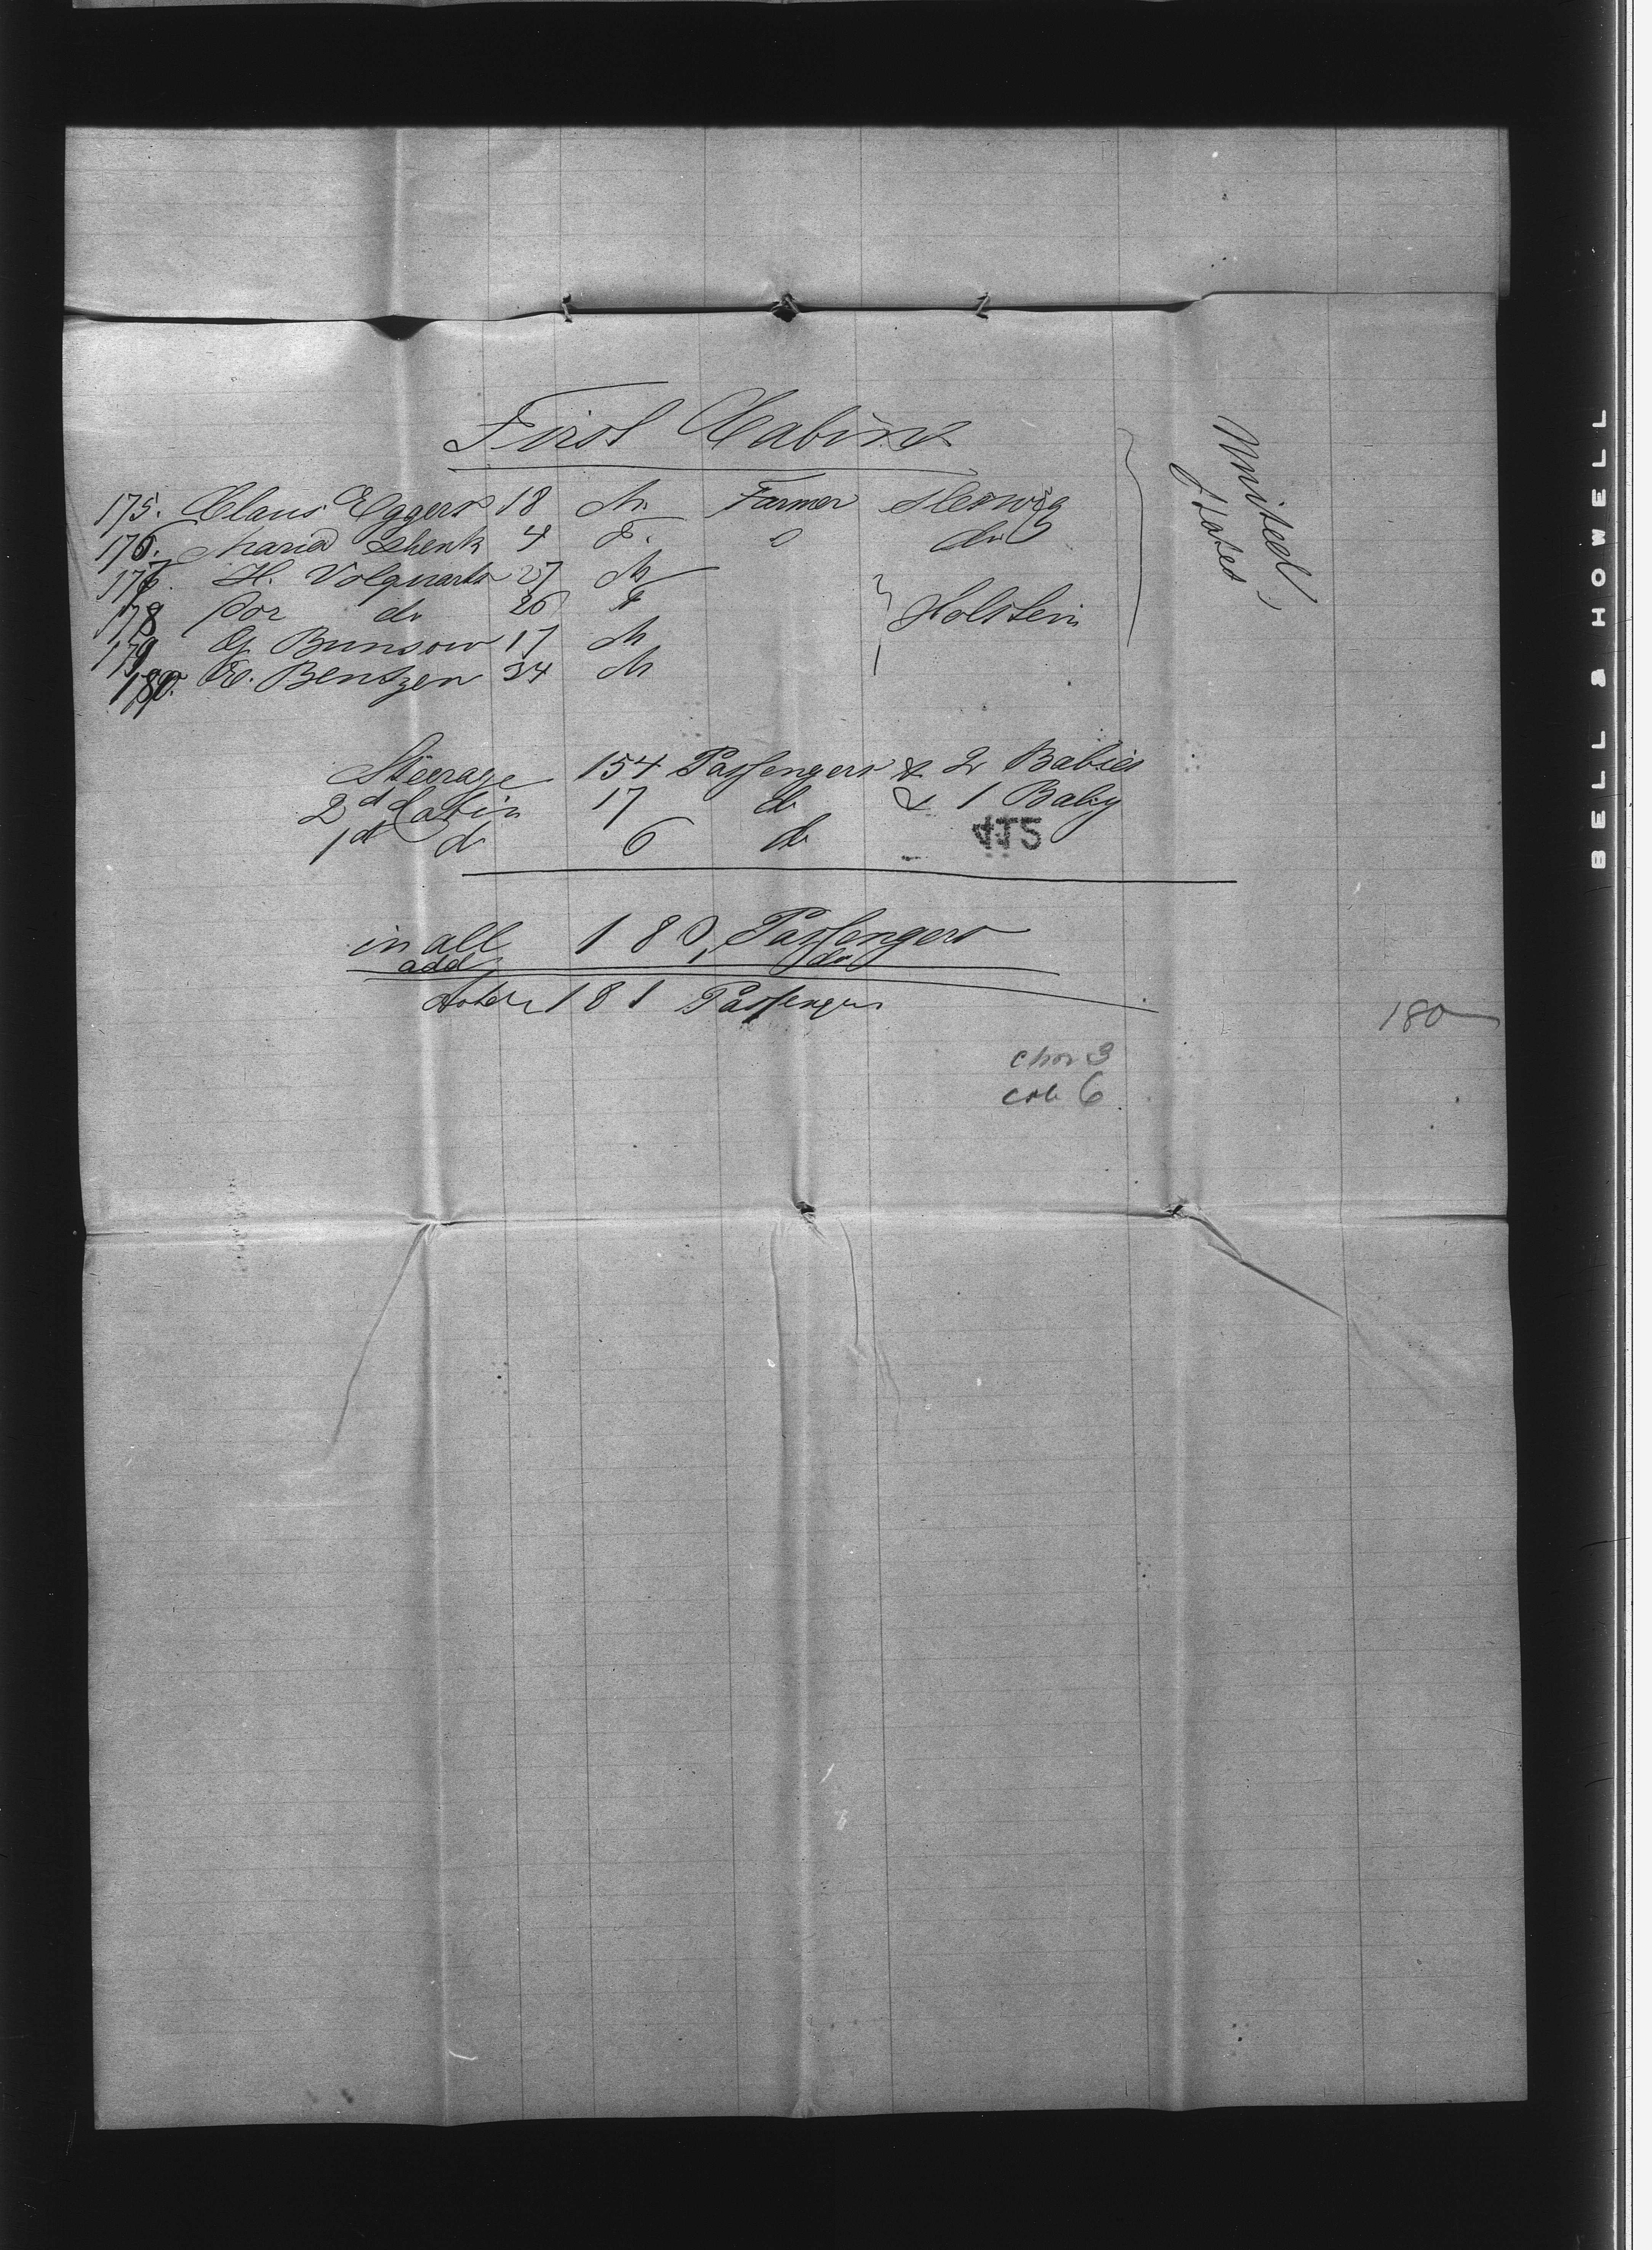 First Cabins
175. Claus Eggers 18 M. Farmer Sleswig
176. Maria Shenk 4 F. o do
177. H. Volquarts 27 M
178 Dor do 26 F Holstein
179 G Bunsow 17 M
180. E. Bentzen 34 M
United States
Steerage 154 Passengers & 2 Babies
2d Cabin 17 do & 1 Baby
1st do 6 do
in all 180, Passengers
add 1 do
181 Passengers
180
3
6
BELL & HOWELL